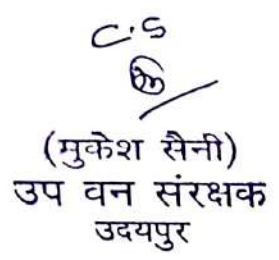 C.S
(मुकेश सैनी)
उप वन संरक्षक
उदयपुर